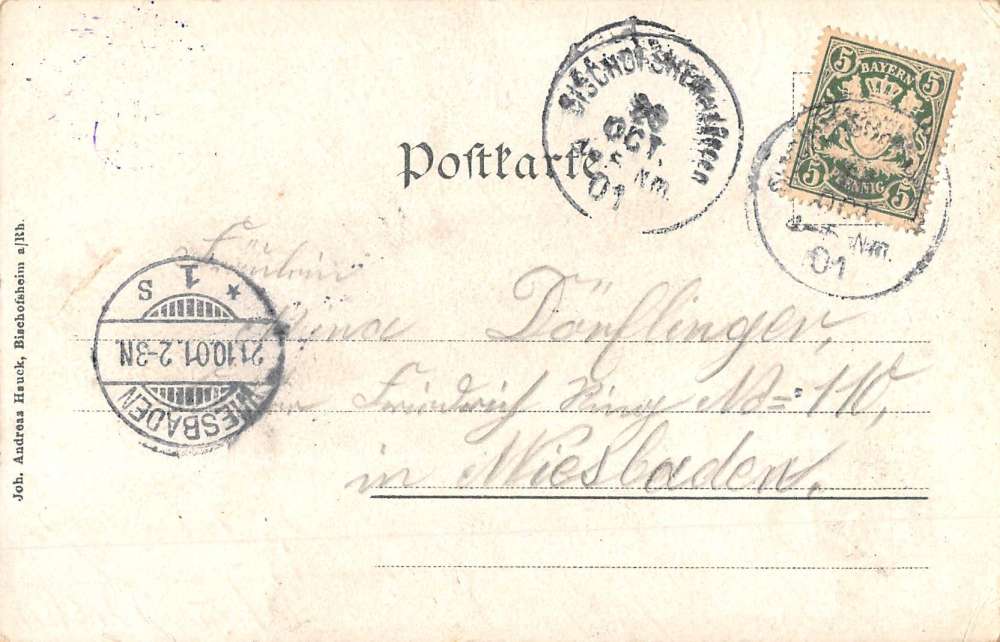 Postkarte
5 BAYERN 5
5 PFENNIG 5
20
OCT.
Nm.
01
Nm.
01
Fräulein
Mina Dörflinger,
Friedrich Ring No 110,
in Wiesbaden.
WIESBADEN
21.10.01. 2-3N.
* 1 S
Joh. Andreas Hauck, Bischofsheim a/Rh.